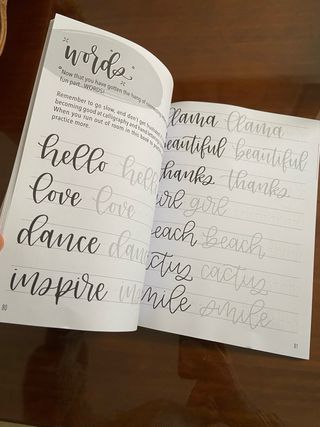 words
Now that you have gotten the hang of
fun part...WORDS!
Remember to go slow, and don't get
becoming good at calligraphy and hand
When you run out of room in this book to
practice more.
hello hello
love love
dance dance
inspire
80
llama llama
beautiful beautiful
thanks thanks
girl girl
beach beach
cactus cactus
smile smile
81